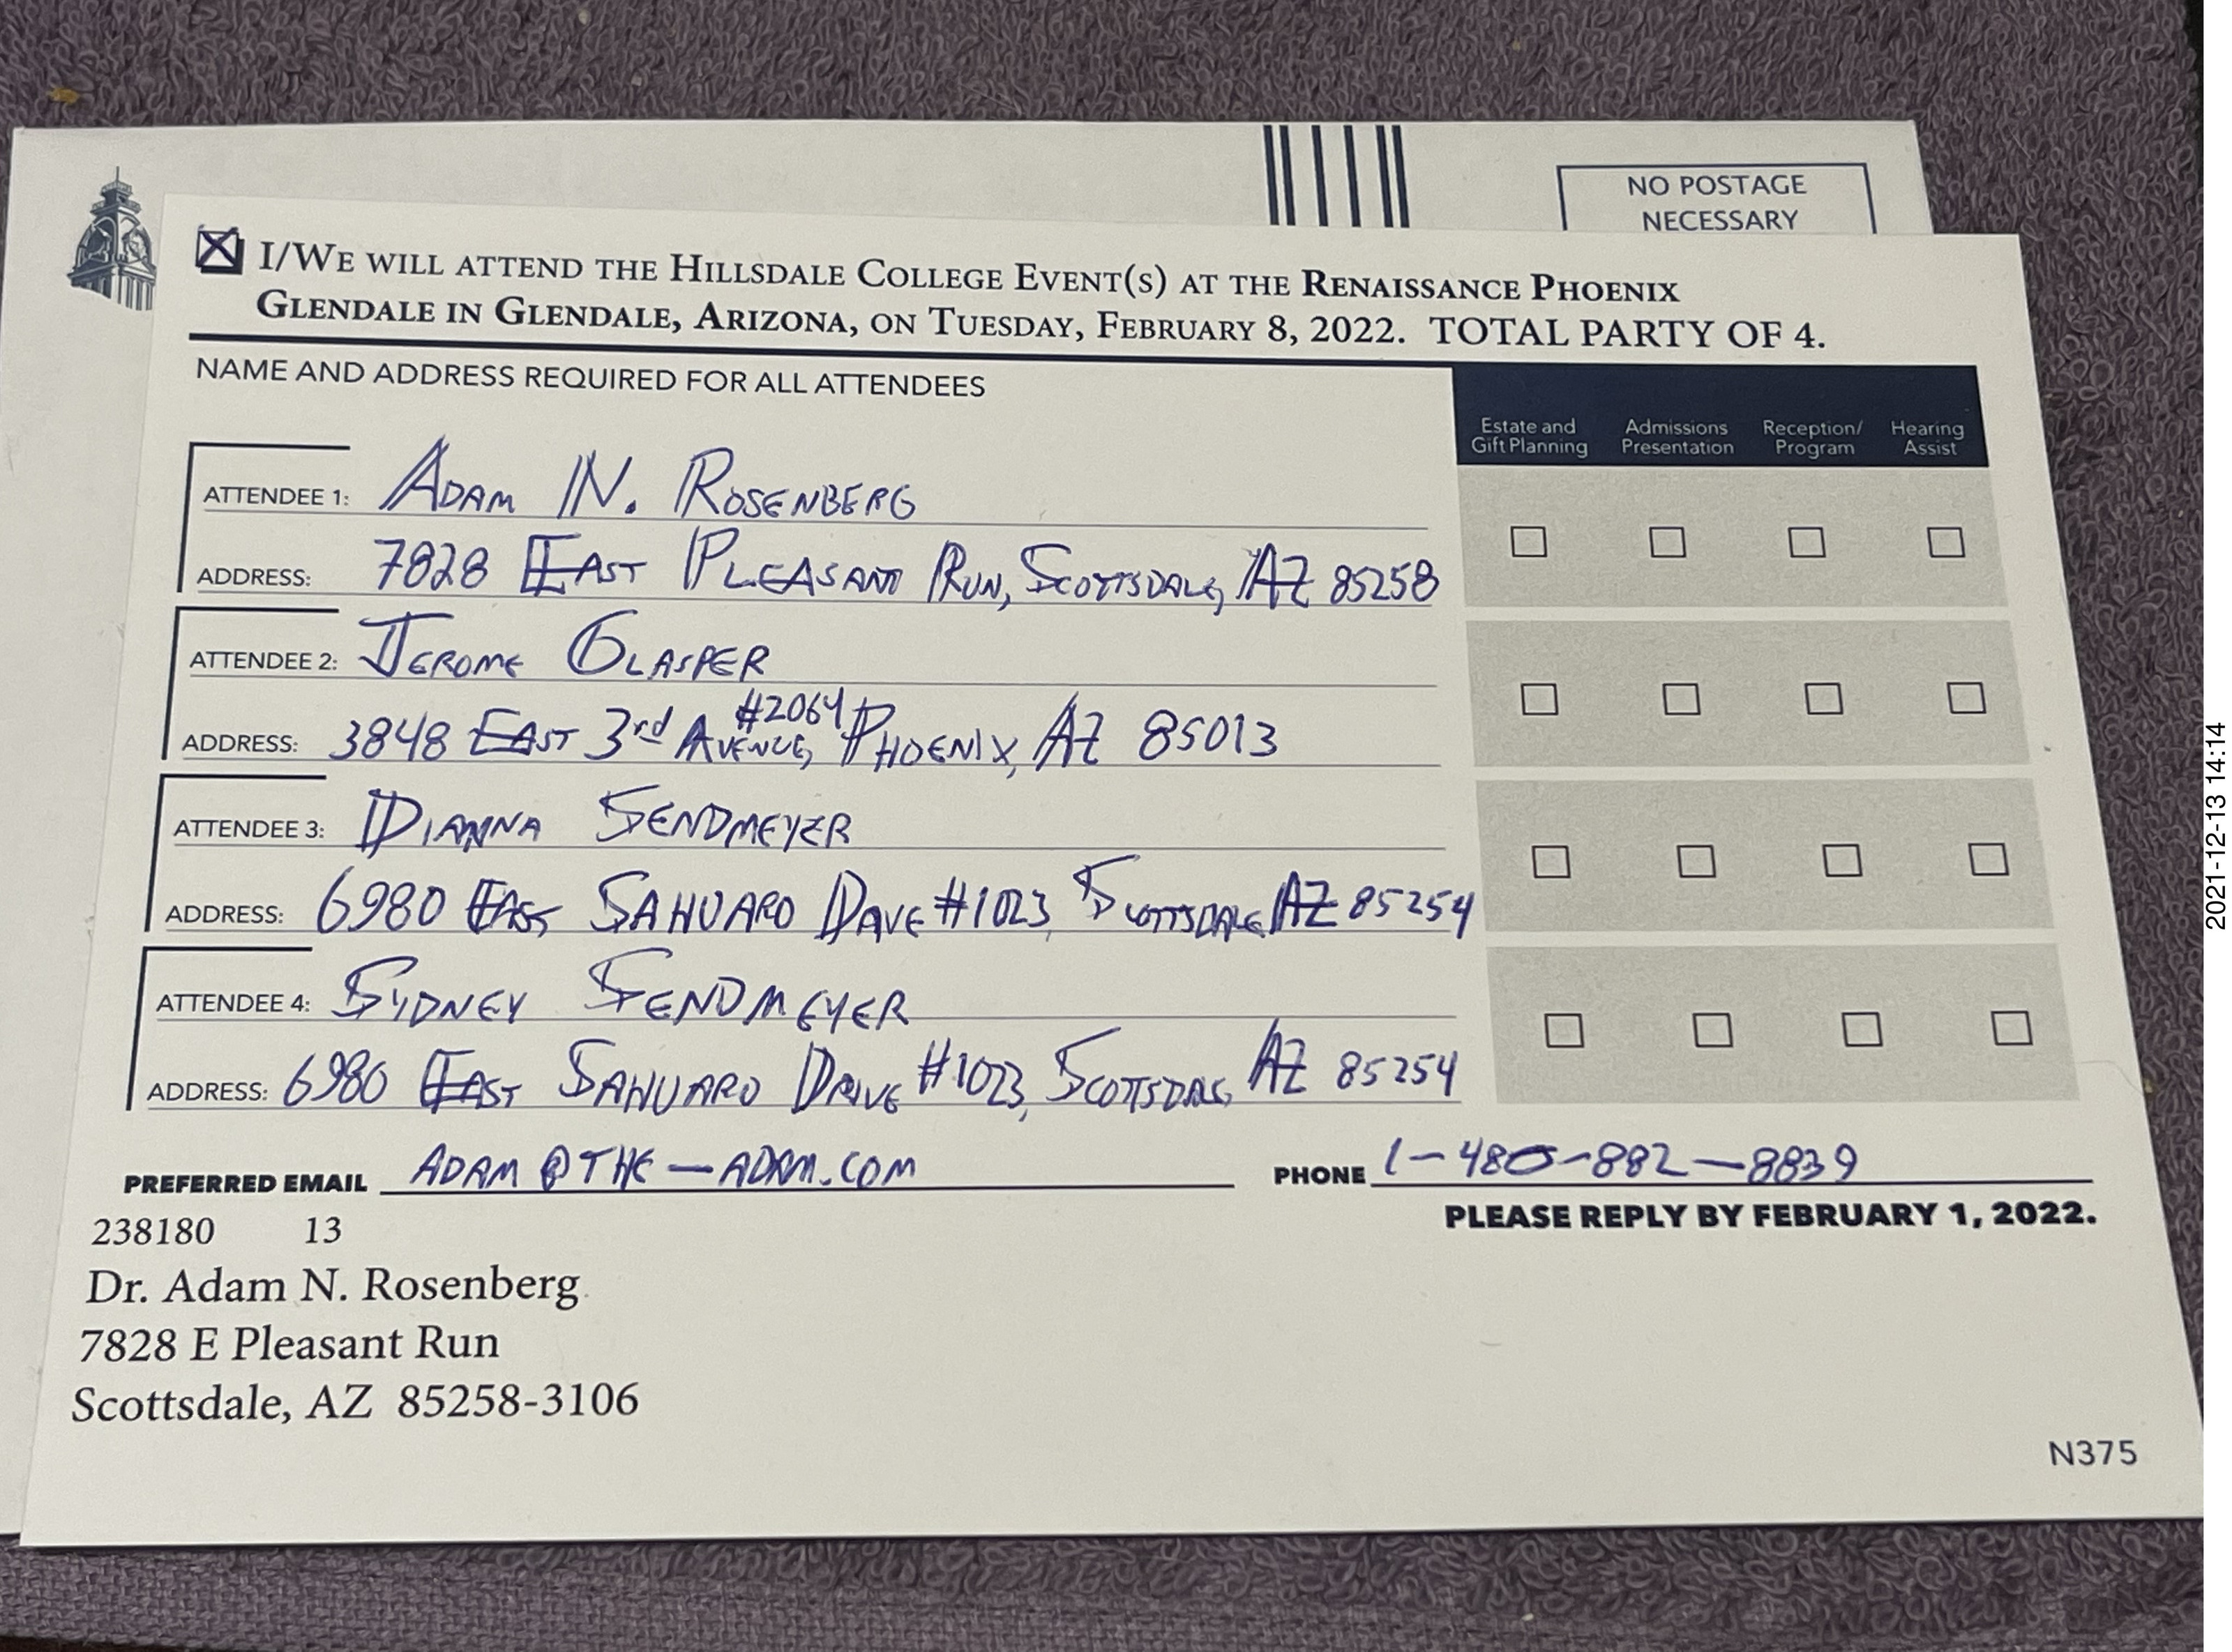 NO POSTAGE
NECESSARY
I/We will attend the Hillsdale College Event(s) at the Renaissance Phoenix
Glendale in Glendale, Arizona, on Tuesday, February 8, 2022. TOTAL PARTY OF 4.
NAME AND ADDRESS REQUIRED FOR ALL ATTENDEES
Estate and Gift Planning Admissions Presentation Reception/Program Hearing Assist
ATTENDEE 1: ADAM N. ROSENBERG
ADDRESS: 7828 EAST PLEASANT RUN, SCOTTSDALE, AZ 85258
ATTENDEE 2: JEROME GLASPER
ADDRESS: 3848 EAST 3rd AVENUE, #2064 PHOENIX, AZ 85013
ATTENDEE 3: DIANNA SENDMEYER
ADDRESS: 6980 EAST SAHUARO DRIVE #1023, SCOTTSDALE, AZ 85254
ATTENDEE 4: SYDNEY SENDMEYER
ADDRESS: 6980 EAST SAHUARO DRIVE #1023, SCOTTSDALE, AZ 85254
PREFERRED EMAIL ADAM@THE-ADAM.COM PHONE 1-480-882-8839
PLEASE REPLY BY FEBRUARY 1, 2022.
238180 13
Dr. Adam N. Rosenberg
7828 E Pleasant Run
Scottsdale, AZ 85258-3106
N375
2021-12-13 14:14